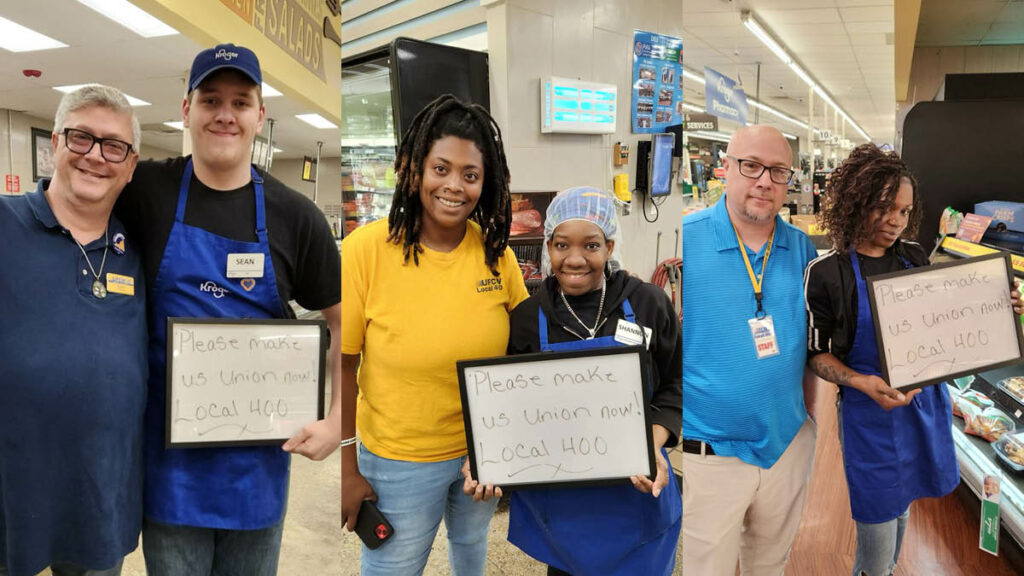 SALADS
Kroger
SEAN
Kroger
Please make
us Union now!
Local 400
UFCW
LOCAL 400
SHANNE
Please make
us Union now!
Local 400
Kroger
Pharmacy
SERVICES
10
STAFF
Please make
us Union now!
Local 400